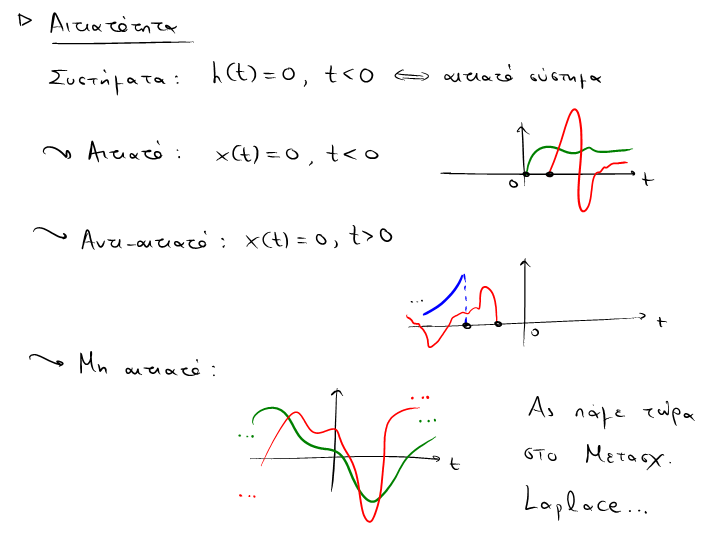 ▷ Αιτιατότητα
Συστήματα: h(t)=0, t<0 ⟺ αιτιατό σύστημα
Αιτιατό: x(t)=0, t<0
0 t
Αντι-αιτιατό: x(t)=0, t>0
...
0 t
Μη αιτιατό:
...
... ...
t
...
Ας πάμε τώρα
στο Μετασχ.
Laplace...